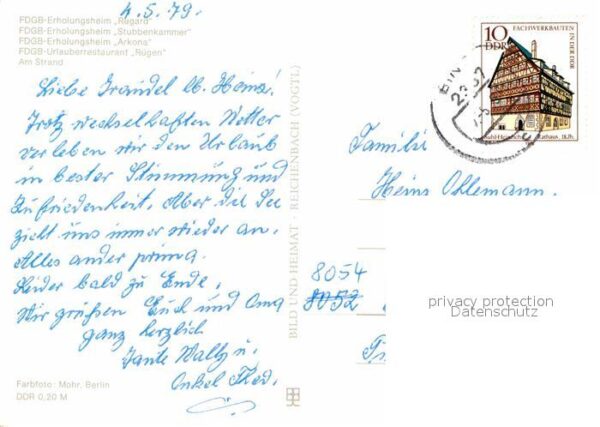 4.5.79.
FDGB-Erholungsheim „Rugard“
FDGB-Erholungsheim „Stubbenkammer“
FDGB-Erholungsheim „Arkona“
FDGB-Urlauberrestaurant „Rügen“
Am Strand
Liebe Traudel lb. Heinz!
Trotz wechselhaften Wetter
verleben wir den Urlaub
in bester Stimmung und
Zufriedenheit. Aber die See
zieht uns immer wieder an.
Alles ander prima.
Leider bald zu Ende.
Wir grüßen Euch und Oma
ganz herzlich
Tante u.
Onkel
Farbfoto: Mohr, Berlin
DDR 0,20 M
BILD UND HEIMAT · REICHENBACH (VOGTL)
10
DDR
FACHWERKBAUTEN
IN DER DDR
Suhl-Heinrichs Rathaus 16.Jh.
BIN
Familie
Heinz Ohlemann.
8054
8052
privacy protection
Datenschutz